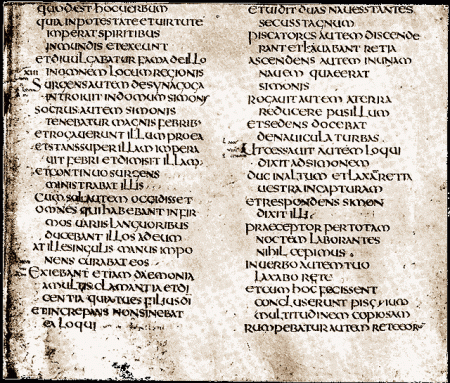 quod est hoc uerbum
quia in potestate et uirtute
imperat spiritibus
inmundis et exeunt
et diuulgabatur fama de illo
in omnem locum regionis
surgens autem de synagoga
introiuit in domum simonis
socrus autem simonis
tenebatur magnis febrib
et rogauerunt illum pro ea
et stans super illam impera
uit febri et dimisit illam
et continuo surgens
ministrabat illis
cum sol autem occidisset
omnes qui habebant infir
mos uariis languoribus
ducebant illos ad eum
at ille singulis manus impo
nens curabat eos
exiebant etiam daemonia
a multis clamantia et di
centia quia tu es filius di
et increpans non sinebat
ea loqui
et uidit duas naues stantes
secus stagnum
piscatores autem discende
rant et lauabant retia
ascendens autem in unam
nauem quae erat
simonis
rogauit autem a terra
reducere pusillum
et sedens docebat
de nauicula turbas
ut cessauit autem loqui
dixit ad simonem
duc in altum et laxa retia
uestra in capturam
et respondens simon
dixit illi
praeceptor per totam
noctem laborantes
nihil cepimus
in uerbo autem tuo
laxabo rete
et cum hoc fecissent
concluserunt piscium
multitudinem copiosam
rumpebatur autem rete eor